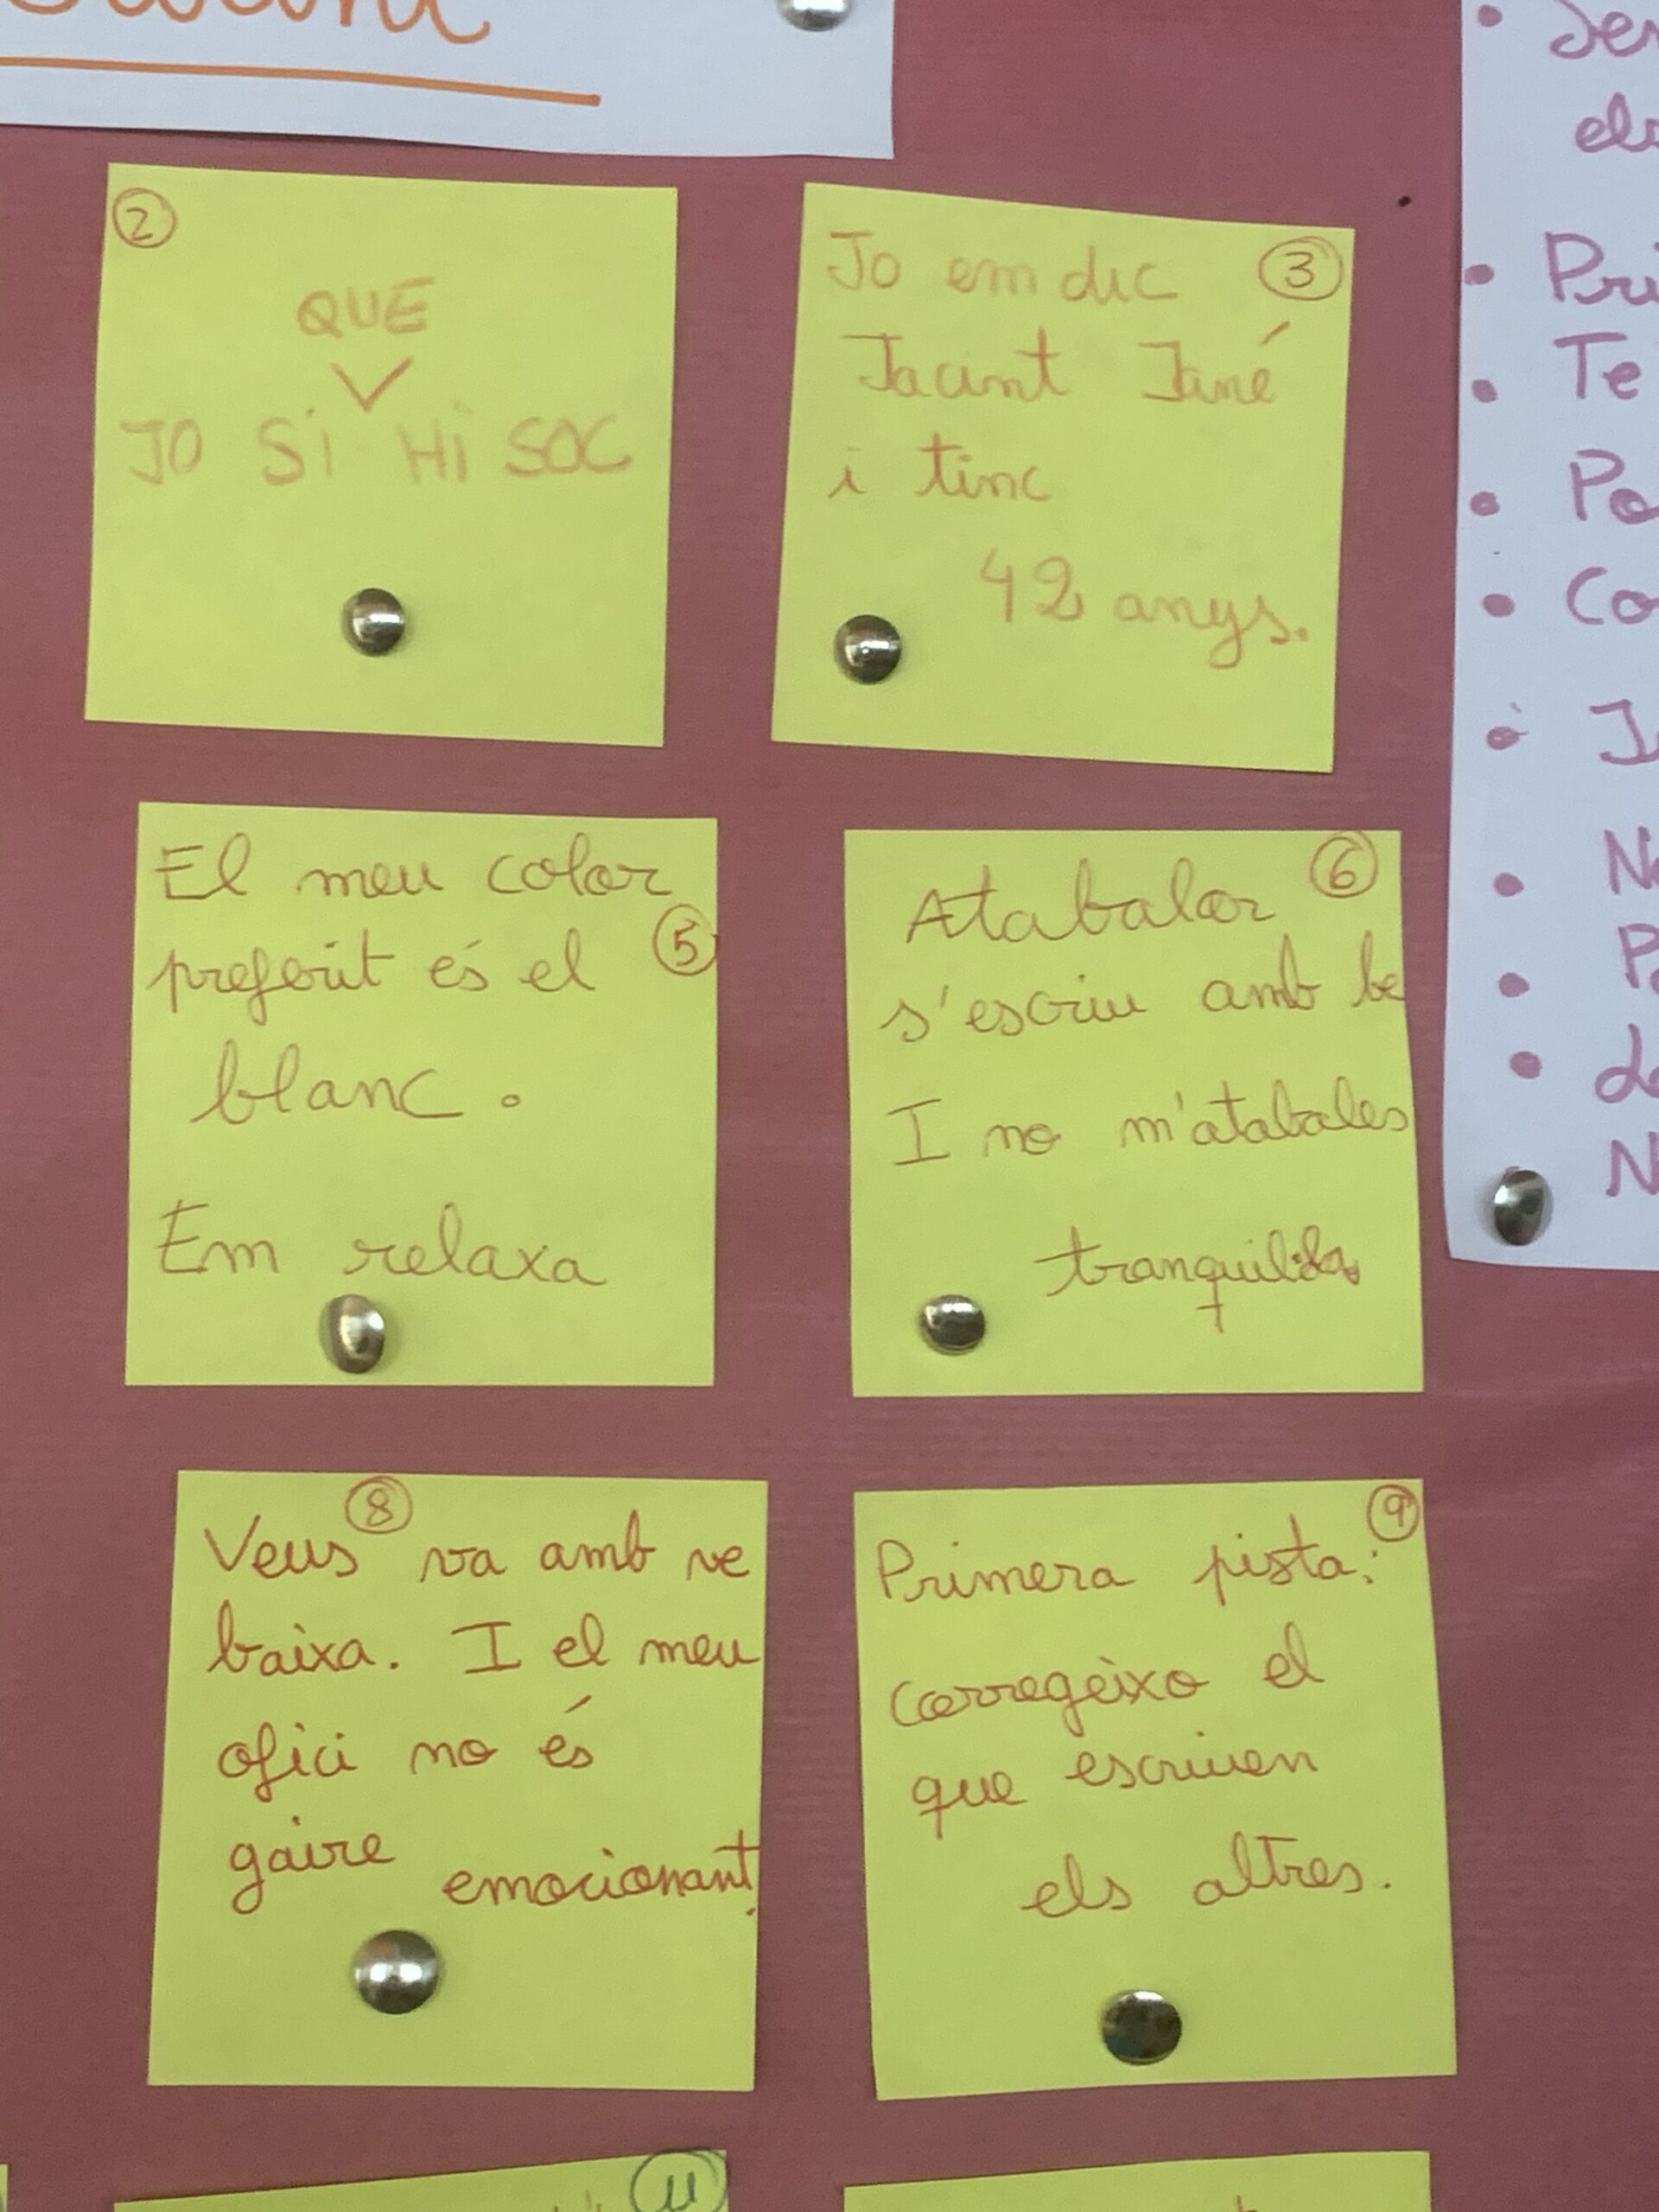 ②
QUE
V
JO SÍ HI SOC
③
Jo em dic
Jacint Jané
i tinc
42 anys.
El meu color
preferit és el
⑤
blanc.
Em relaxa
⑥
Atabalar
s'escriu amb be
I no m'atabales
tranquil·la
⑧
Veus va amb ve
baixa. I el meu
ofici no és
gaire emocionant.
⑨
Primera pista:
corregeixo el
que escriuen
els altres.
11
Te